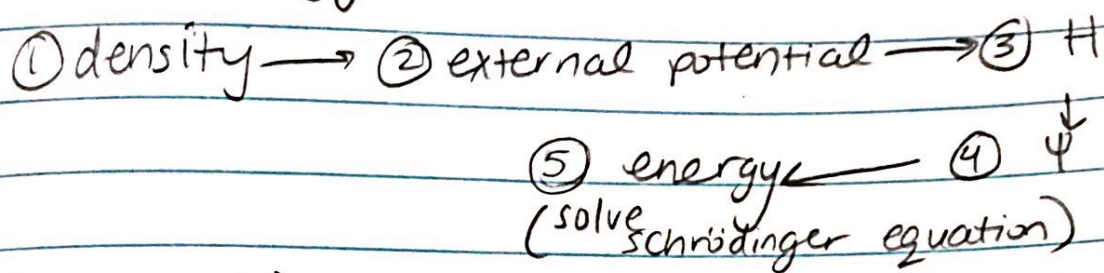 ① density → ② external potential → ③ H
↓
⑤ energy ← ④ Ψ
(solve schrödinger equation)